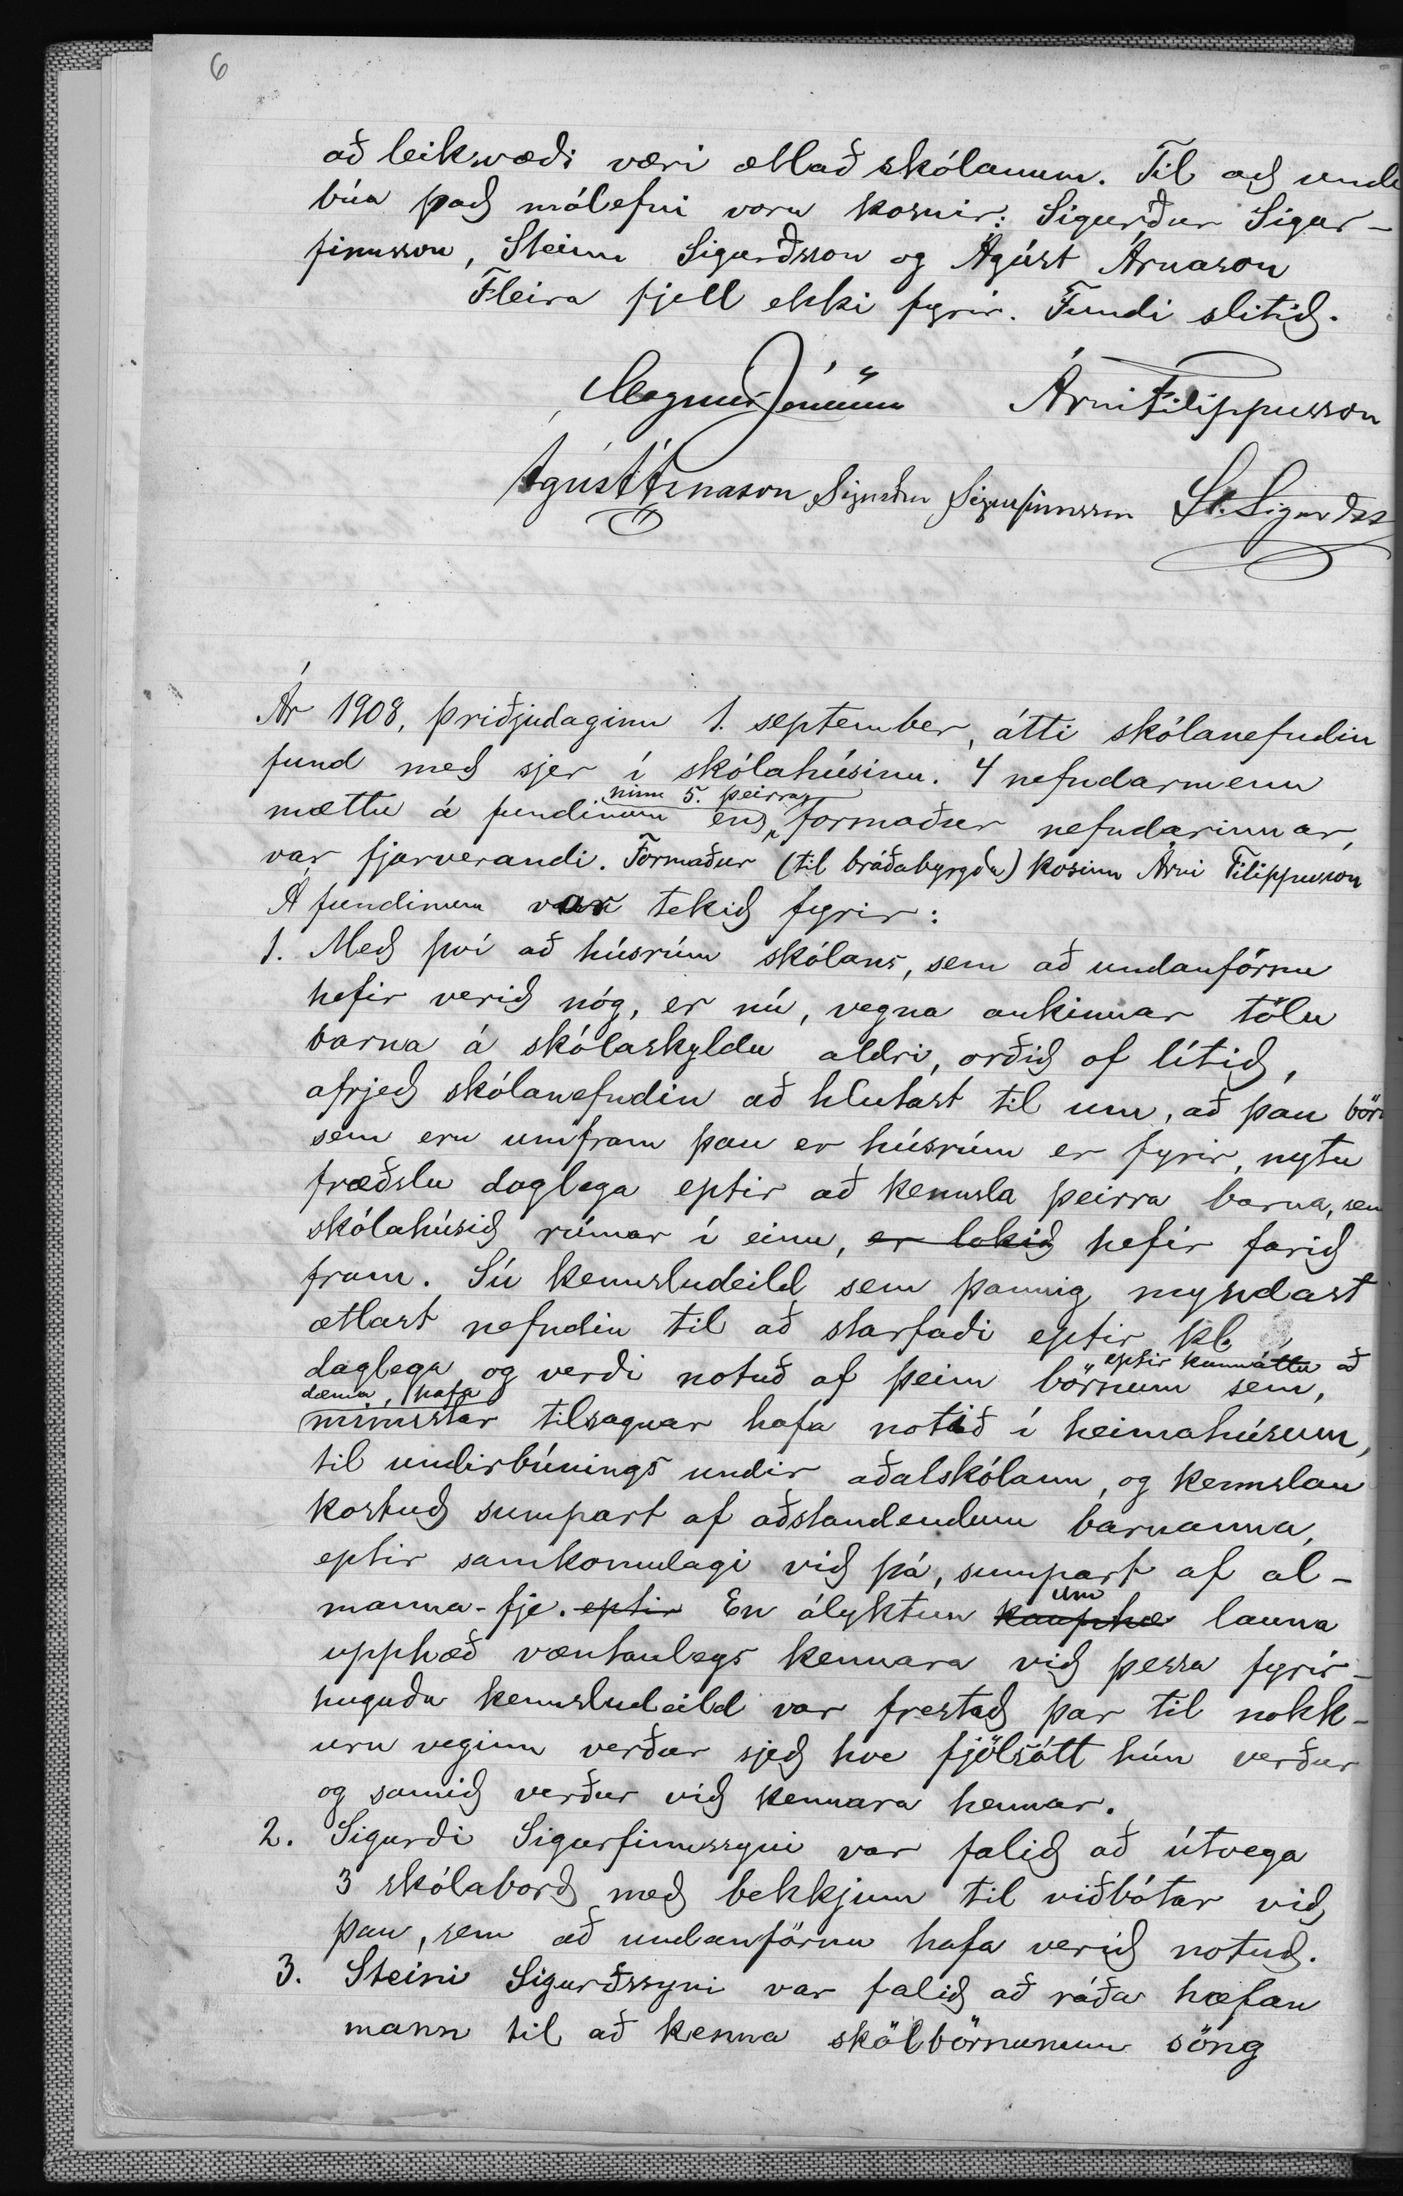 6
að leiksvæði væri ætlað skólanum. Til að undi
búa það málefni voru kosnir: Sigurður Sigur-
finnsson, Steinn Sigurðsson og Ágúst Árnason
Fleira fjell ekki fyrir. Fundi slitið.
Magnus Jónsson Árni Filippusson
Ágúst Árnason Sigurður Sigurfinnsson St. Sigurðss
Ár 1908, þriðjudaginn 1. september, átti skólanefndin
fund með sjer í skólahúsinu. 4 nefndarmenn
hinn 5. þeirra,
mættu á fundinum en formaður nefndarinnar,
var fjarverandi. Formaður (til bráðabyrgða) kosinn Árni Filippusson
Á fundinum var tekið fyrir:
1. Með því að húsrúm skólans, sem að undanförnu
hefir verið nóg, er nú, vegna aukinnar tölu
barna á skólaskyldu aldri, orðið of lítið,
afrjeð skólanefndin að hlutast til um, að þau börn
sem eru umfram þau er húsrúm er fyrir, nytu
fræðslu daglega eptir að kennsla þeirra barna, sem
skólahúsið rúmar í einu, er lokið hefir farið
fram. Sú kennsludeild sem þannig myndast
ætlast nefndin til að starfaði eptir kl
eptir kunnáttu að
daglega og verði notuð af þeim börnum sem,
dæma, hafa
minnstar tilsagnar hafa notið í heimahúsum,
til undirbúnings undir aðalskólann, og kennslan
kostuð sumpart af aðstandendum barnanna,
eptir samkomulagi við þá, sumpart af al-
manna-fje. eptir En ályktun kauphæ um launa
upphæð væntanlegs kennara við þessa fyrir-
huguðu kennsludeild var frestað þar til nokk-
urn veginn verður sjeð hve fjölsótt hún verður
og samið verður við kennara hennar.
2. Sigurði Sigurfinnssyni var falið að útvega
3 skólaborð með bekkjum til viðbótar við
þau, sem að undanförnu hafa verið notuð.
3. Steini Sigurðssyni var falið að ráða hæfan
mann til að kenna skólbörnunum söng